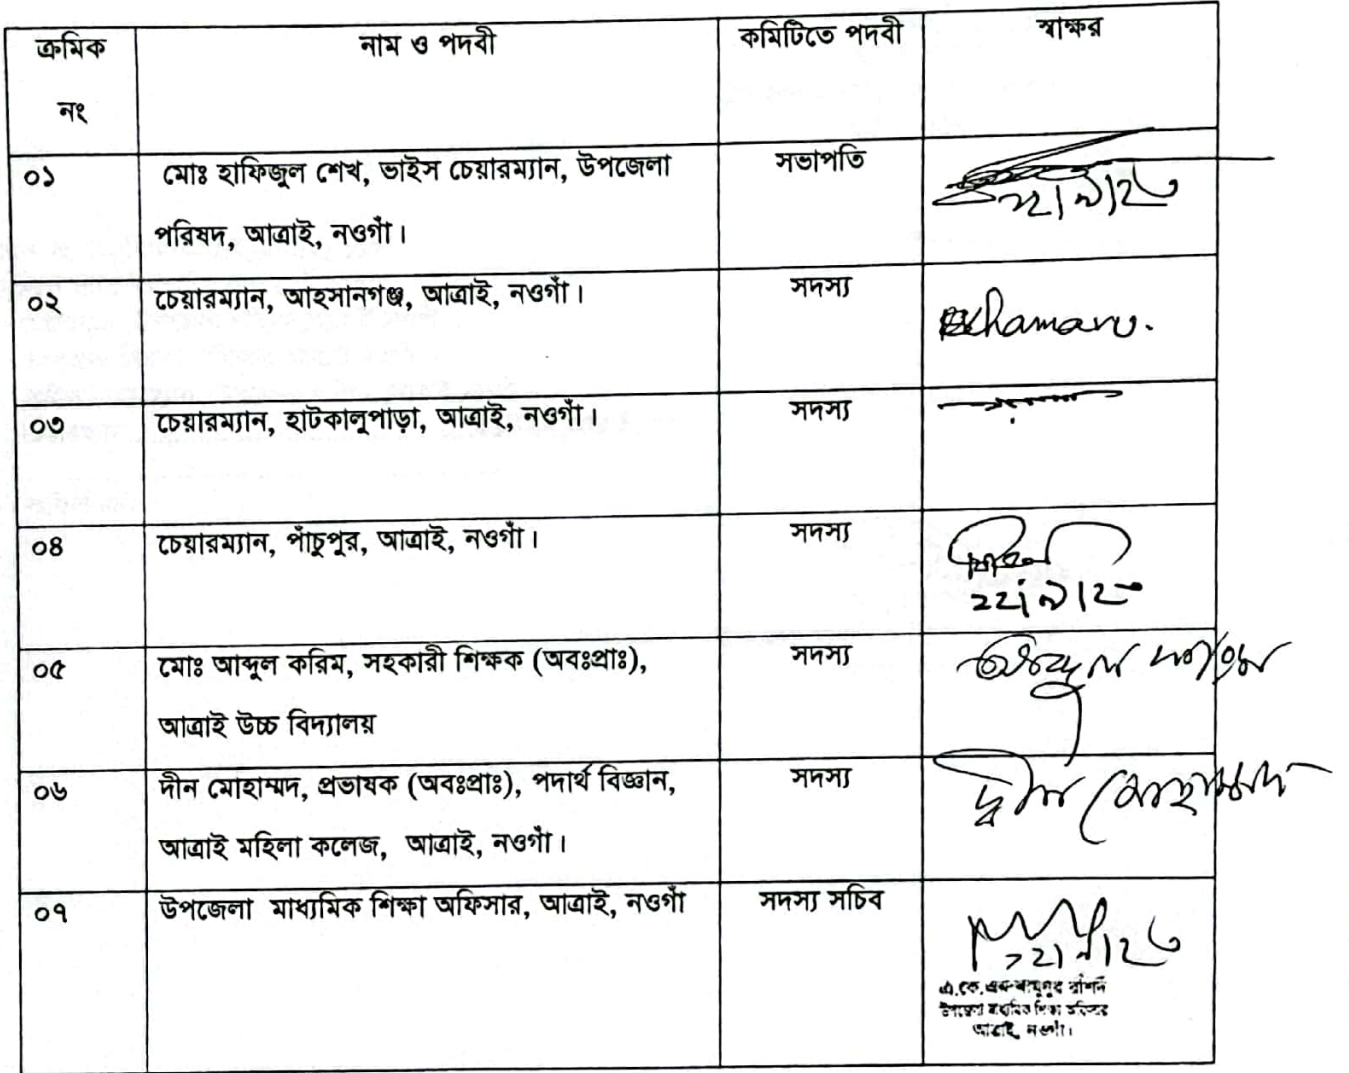 ক্রমিক নং	নাম ও পদবী	কমিটিতে পদবী	স্বাক্ষর
০১	মোঃ হাফিজুল শেখ, ভাইস চেয়ারম্যান, উপজেলা	সভাপতি
পরিষদ, আত্রাই, নওগাঁ।
০২	চেয়ারম্যান, আহসানগঞ্জ, আত্রাই, নওগাঁ।	সদস্য
০৩	চেয়ারম্যান, হাটকালুপাড়া, আত্রাই, নওগাঁ।	সদস্য
০৪	চেয়ারম্যান, পাঁচুপুর, আত্রাই, নওগাঁ।	সদস্য
০৫	মোঃ আব্দুল করিম, সহকারী শিক্ষক (অবঃপ্রাঃ),	সদস্য
আত্রাই উচ্চ বিদ্যালয়
০৬	দীন মোহাম্মদ, প্রভাষক (অবঃপ্রাঃ), পদার্থ বিজ্ঞান,	সদস্য	দ্বীন মোহাম্মদ
আত্রাই মহিলা কলেজ, আত্রাই, নওগাঁ।
০৭	উপজেলা মাধ্যমিক শিক্ষা অফিসার, আত্রাই, নওগাঁ	সদস্য সচিব
উপজেলা মাধ্যমিক শিক্ষা অফিসার
আত্রাই, নওগাঁ।